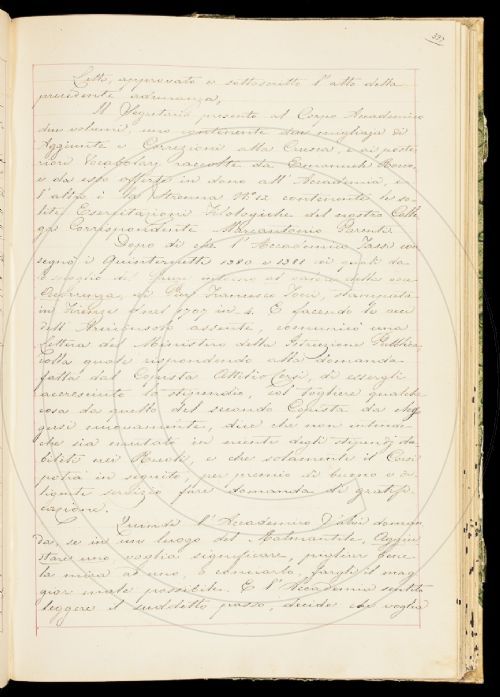 397
Letto, approvato e sottoscritto l'atto della
precedente adunanza,
Il Segretario presentò al Corpo Accademico
due volumi, uno contenente due migliaja di
Aggiunte e Correzioni alla Crusca, e ai poste-
riori Vocabolarj raccolte da Emanuele Rocco,
e da esso offerte in dono all'Accademia, e
l'altro è la Strenna N° 12 contenente le so-
lite Esercitazioni Filologiche del nostro Colle-
ga Corrispondente Marcantonio Parenti.
Dopo di che l'Accademico Tassi con-
segnò i Quinternetti 1380 e 1381 nei quali dà
lo spoglio di
Occorrenza, di Pier Francesco Tocci, stampata
in Firenze nel 1707 in 4. E facendo le veci
dell'Arciconsolo assente, comunicò una
Lettera del Ministro della Istruzione Pubblica
colla quale rispondendo alla domanda
fatta dal Copista Attilio Corsi, di essergli
accresciuto lo stipendio, col togliere qualche
cosa da quello del secondo Copista da eleg-
gersi nuovamente, dice che non intende
che sia mutato in niente degli stipendj sta-
biliti nei Ruoli, e che solamente il Corsi
potrà in seguito, per premio di buono e di-
ligente servizio fare domanda di gratifi-
cazione.
Quindi l'Accademico
da, se in un luogo del Malmantile, Aggiu-
stare uno voglia significare, pigliar
la mira ad uno, o conciarlo, fargli il mag-
gior male possibile. E l'Accademia sentito
leggere il suddetto passo, decide che voglia